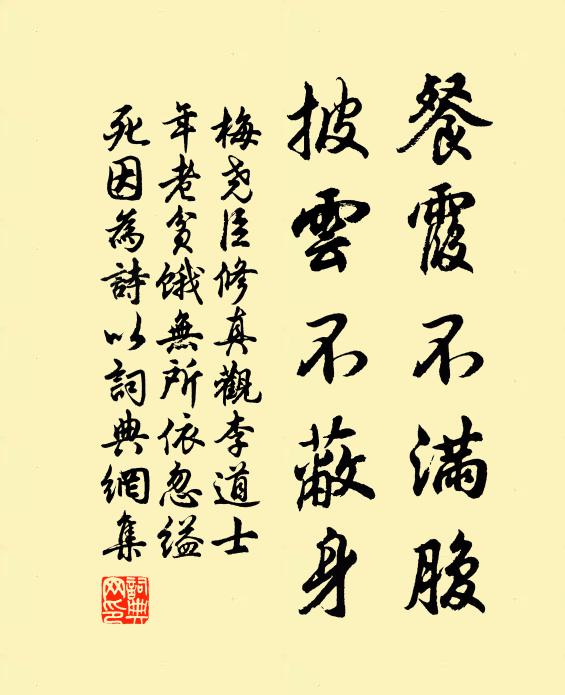 餐霞不滿腹
披雲不蔽身
梅堯臣修真觀李道士
年老貧餓無所依忽縊
死因為詩以詞典網集
詞典
网印